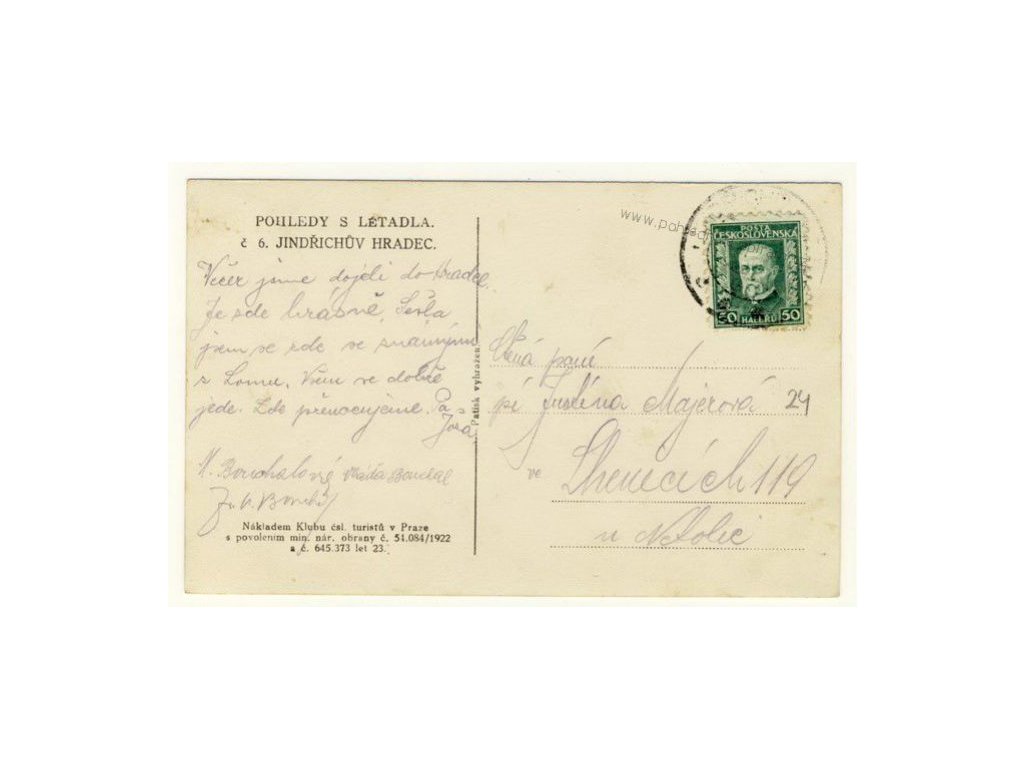 POHLEDY S LETADLA.
č 6. JINDŘICHŮV HRADEC.
Večer jsme dojeli do Hradce.
Je zde krásně. Sešla
jsem se zde se známými
z Lomu. Vším ve dobře
jede. Zde přenocujeme. Pá
Jožа
M. Bouchalová Vláďa Bouchal
Nákladem Klubu čsl. turistů v Praze
s povolením min. nár. obrany č. 51.084/1922
a č. 645.373 let 23.
Patisk vyhrazen
www.pohle
POŠTA
ČESKOSLOVENSKÁ
50 HALÉŘŮ 50
Ctěná paní
pí Majerová 24
ve 119
u Netolic